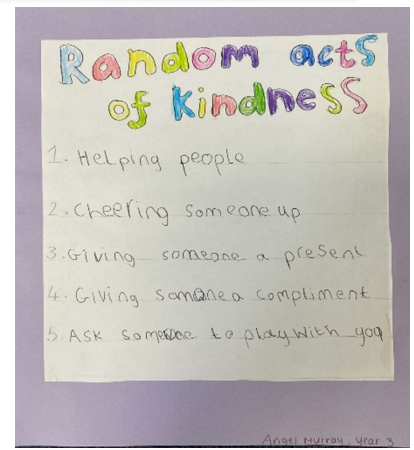 Random acts
of kindness
1. Helping people
2. Cheering someone up
3. Giving someone a present
4. Giving someone a compliment
5. Ask someone to play with you
Angel Murray, year 3